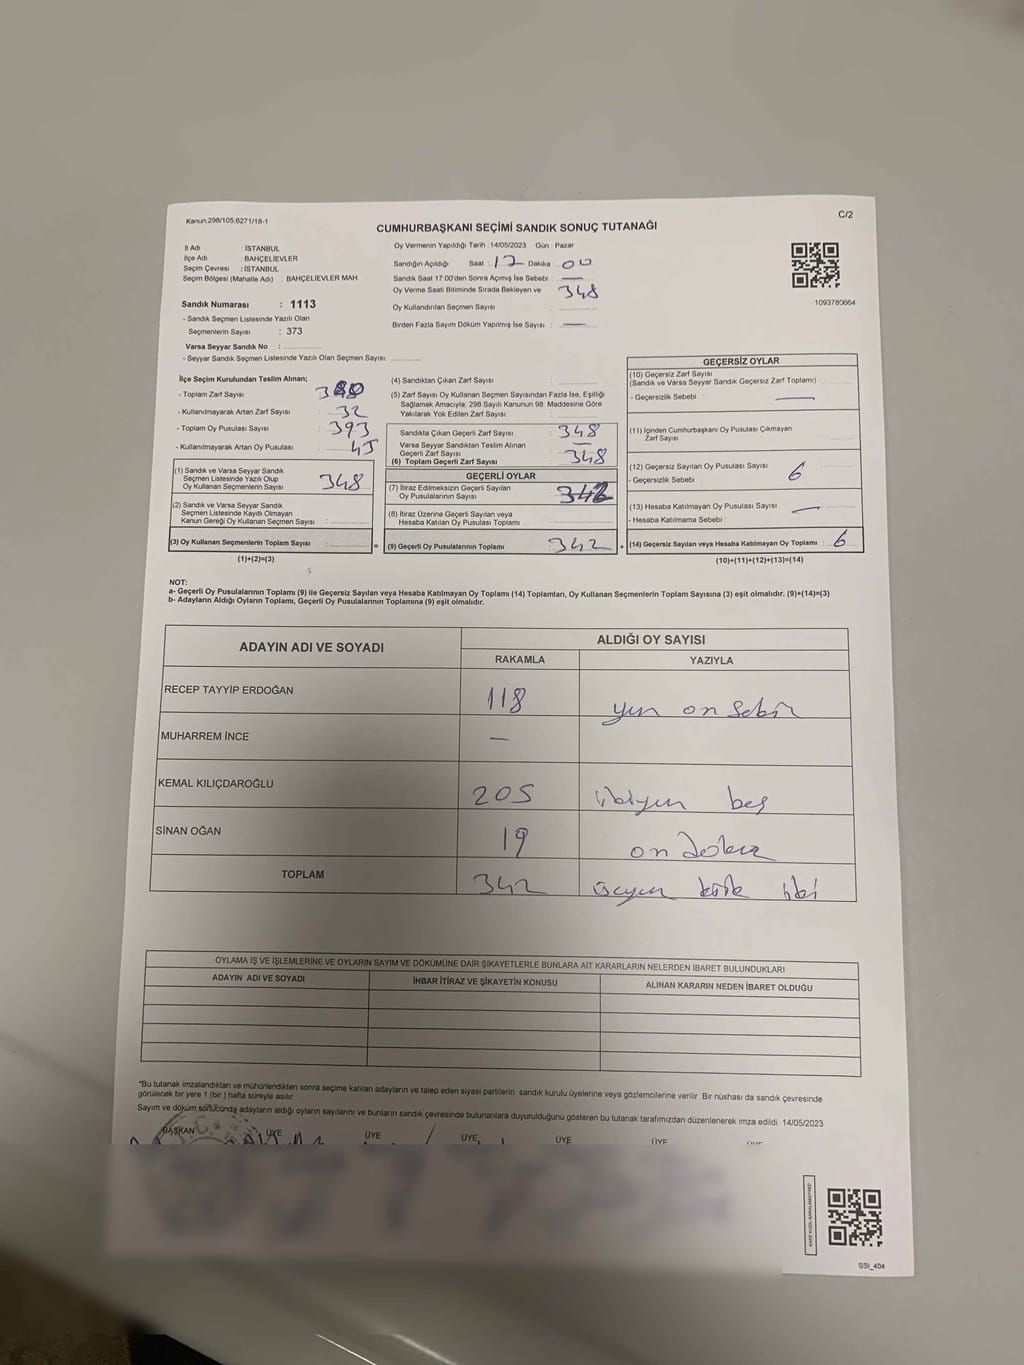 Kanun:298/105,6271/18-1
C/2
CUMHURBAŞKANI SEÇİMİ SANDIK SONUÇ TUTANAĞI
İl Adı : İSTANBUL
İlçe Adı : BAHÇELİEVLER
Seçim Çevresi : İSTANBUL
Seçim Bölgesi (Mahalle Adı) : BAHÇELİEVLER MAH.
Sandık Numarası : 1113
- Sandık Seçmen Listesinde Yazılı Olan
Seçmenlerin Sayısı : 373
Varsa Seyyar Sandık No :
- Seyyar Sandık Seçmen Listesinde Yazılı Olan Seçmen Sayısı:
Oy Vermenin Yapıldığı Tarih :14/05/2023 Gün : Pazar
Sandığın Açıldığı Saat : 17 Dakika : 00
Sandık Saat 17:00'den Sonra Açılmış İse Sebebi : —
Oy Verme Saati Bitiminde Sırada Bekleyen ve 348
Oy Kullandırılan Seçmen Sayısı :
Birden Fazla Sayım Döküm Yapılmış İse Sayısı : —
1093780664
İlçe Seçim Kurulundan Teslim Alınan;
- Toplam Zarf Sayısı : 380
- Kullanılmayarak Artan Zarf Sayısı : 32
- Toplam Oy Pusulası Sayısı : 393
- Kullanılmayarak Artan Oy Pusulası : 45
(1) Sandık ve Varsa Seyyar Sandık
Seçmen Listesinde Yazılı Olup
Oy Kullanan Seçmenlerin Sayısı : 348
(2) Sandık ve Varsa Seyyar Sandık
Seçmen Listesinde Kayıtlı Olmayan
Kanun Gereği Oy Kullanan Seçmen Sayısı :
(3) Oy Kullanan Seçmenlerin Toplam Sayısı :
(1)+(2)=(3)
(4) Sandıktan Çıkan Zarf Sayısı :
(5) Zarf Sayısı Oy Kullanan Seçmen Sayısından Fazla İse, Eşitliği
Sağlamak Amacıyla; 298 Sayılı Kanunun 98. Maddesine Göre
Yakılarak Yok Edilen Zarf Sayısı :
Sandıkta Çıkan Geçerli Zarf Sayısı : 348
Varsa Seyyar Sandıktan Teslim Alınan
Geçerli Zarf Sayısı : —
(6) Toplam Geçerli Zarf Sayısı : 348
GEÇERLİ OYLAR
(7) İtiraz Edilmeksizin Geçerli Sayılan
Oy Pusulalarının Sayısı : 342
(8) İtiraz Üzerine Geçerli Sayılan veya
Hesaba Katılan Oy Pusulası Toplamı :
= (9) Geçerli Oy Pusulalarının Toplamı : 342
GEÇERSİZ OYLAR
(10) Geçersiz Zarf Sayısı
(Sandık ve Varsa Seyyar Sandık Geçersiz Zarf Toplamı) :
- Geçersizlik Sebebi : —
(11) İçinden Cumhurbaşkanı Oy Pusulası Çıkmayan
Zarf Sayısı :
(12) Geçersiz Sayılan Oy Pusulası Sayısı : 6
- Geçersizlik Sebebi :
(13) Hesaba Katılmayan Oy Pusulası Sayısı : —
- Hesaba Katılmama Sebebi :
+ (14) Geçersiz Sayılan veya Hesaba Katılmayan Oy Toplamı : 6
(10)+(11)+(12)+(13)=(14)
NOT:
a- Geçerli Oy Pusulalarının Toplamı (9) ile Geçersiz Sayılan veya Hesaba Katılmayan Oy Toplamı (14) Toplamları, Oy Kullanan Seçmenlerin Toplam Sayısına (3) eşit olmalıdır. (9)+(14)=(3)
b- Adayların Aldığı Oyların Toplamı, Geçerli Oy Pusulalarının Toplamına (9) eşit olmalıdır.
ADAYIN ADI VE SOYADI ALDIĞI OY SAYISI
RAKAMLA YAZIYLA
RECEP TAYYİP ERDOĞAN 118 yüz on sekiz
MUHARREM İNCE —
KEMAL KILIÇDAROĞLU 205 ikiyüz beş
SİNAN OĞAN 19 on dokuz
TOPLAM 342 üçyüz kırk iki
OYLAMA İŞ VE İŞLEMLERİNE VE OYLARIN SAYIM VE DÖKÜMÜNE DAİR ŞİKAYETLERLE BUNLARA AİT KARARLARIN NELERDEN İBARET BULUNDUKLARI
ADAYIN ADI VE SOYADI İHBAR İTİRAZ VE ŞİKAYETİN KONUSU ALINAN KARARIN NEDEN İBARET OLDUĞU
*Bu tutanak imzalandıktan ve mühürlendikten sonra seçime katılan adayların ve talep eden siyasi partilerin sandık kurulu üyelerine veya gözlemcilerine verilir. Bir nüshası da sandık çevresinde
görülecek bir yere 1 (bir ) hafta süreyle asılır.
Sayım ve döküm sonucunda adayların aldığı oyların sayılarını ve bunların sandık çevresinde bulunanlara duyurulduğunu gösteren bu tutanak tarafımızdan düzenlenerek imza edildi. 14/05/2023
BAŞKAN ÜYE ÜYE ÜYE ÜYE ÜYE
SSI_404